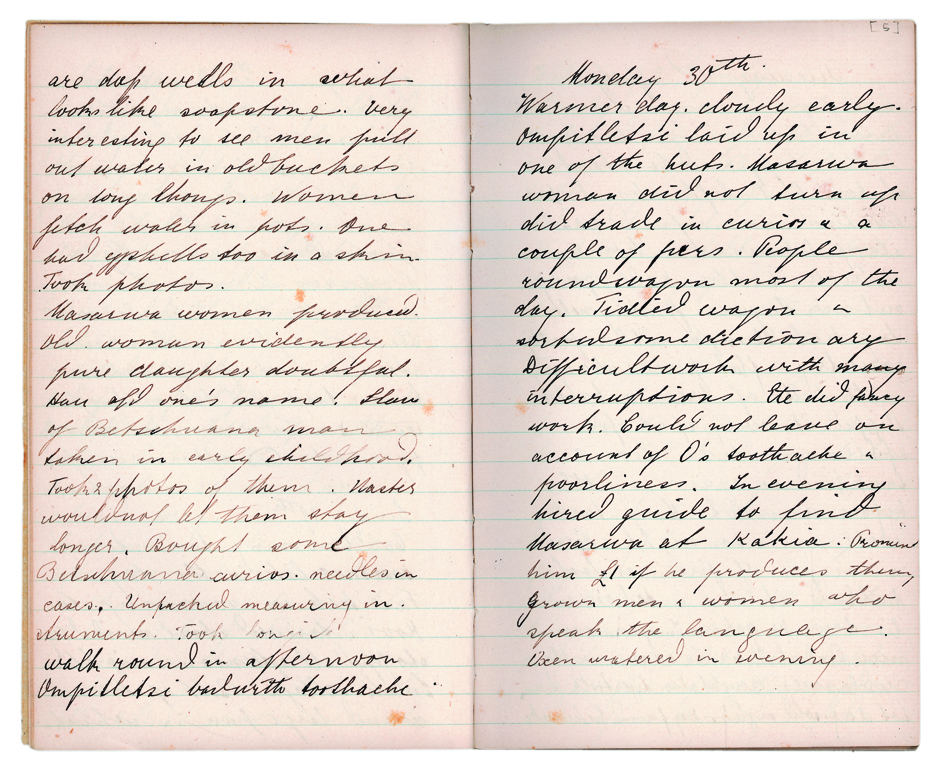 are deep wells in what
looks like soapstone. Very
interesting to see men pull
out water in old buckets
on long thongs. Women
fetch water in pots. One
had eggshells too in a skin.
Took photos.
Masarwa women produced.
Old woman evidently
pure daughter doubtful.
Hau old one's name. Slave
of Betschuana man
taken in early childhood.
Took 2 photos of them. Master
would not let them stay
longer. Bought some
Betschuana curios. needles in
cases. Unpacked measuring in.
struments. Took
walk round in afternoon
Ompilletsi bad with toothache.
[5]
Monday 30th.
Warmer day. cloudy early.
Ompilletsi laid up in
one of the huts. Masarwa
woman did not turn up
did trade in curios & a
couple of furs. People
round wagon most of the
day. Tidied wagon &
sorted some dictionary
Difficult work with many
interruptions. did fancy
work. Could not leave on
account of O's toothache &
poorliness. In evening
hired guide to find
Masarwa at Kakia. Promised
him £1 if he produces them,
grown men & women who
speak the language.
Oxen watered in evening.